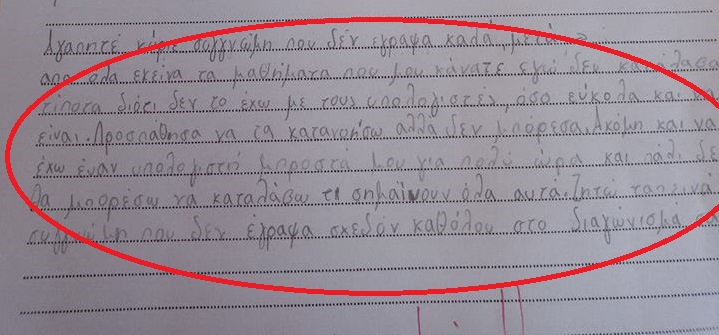 Αγαπητέ κύριε συγγνώμη που δέν έγραψα καλά, μετά
απο όλα εκείνα τα μαθήματα που μου κάνατε εγώ δεν κατάλαβα
τίποτα διότι δεν το έχω με τους υπολογιστές, όσο εύκολα και να
είναι. Προσπάθησα να τα κατανοήσω αλλά δεν μπόρεσα. Ακόμη και να
έχω έναν υπολογιστή μπροστά μου για πολύ ώρα και πάλι δε
θα μπορέσω να καταλάβω τι σημαίνουν όλα αυτα. Ζητώ ταπεινά
συγγνώμη που δεν έγραψα σχεδόν καθόλου στο διαγώνισμα